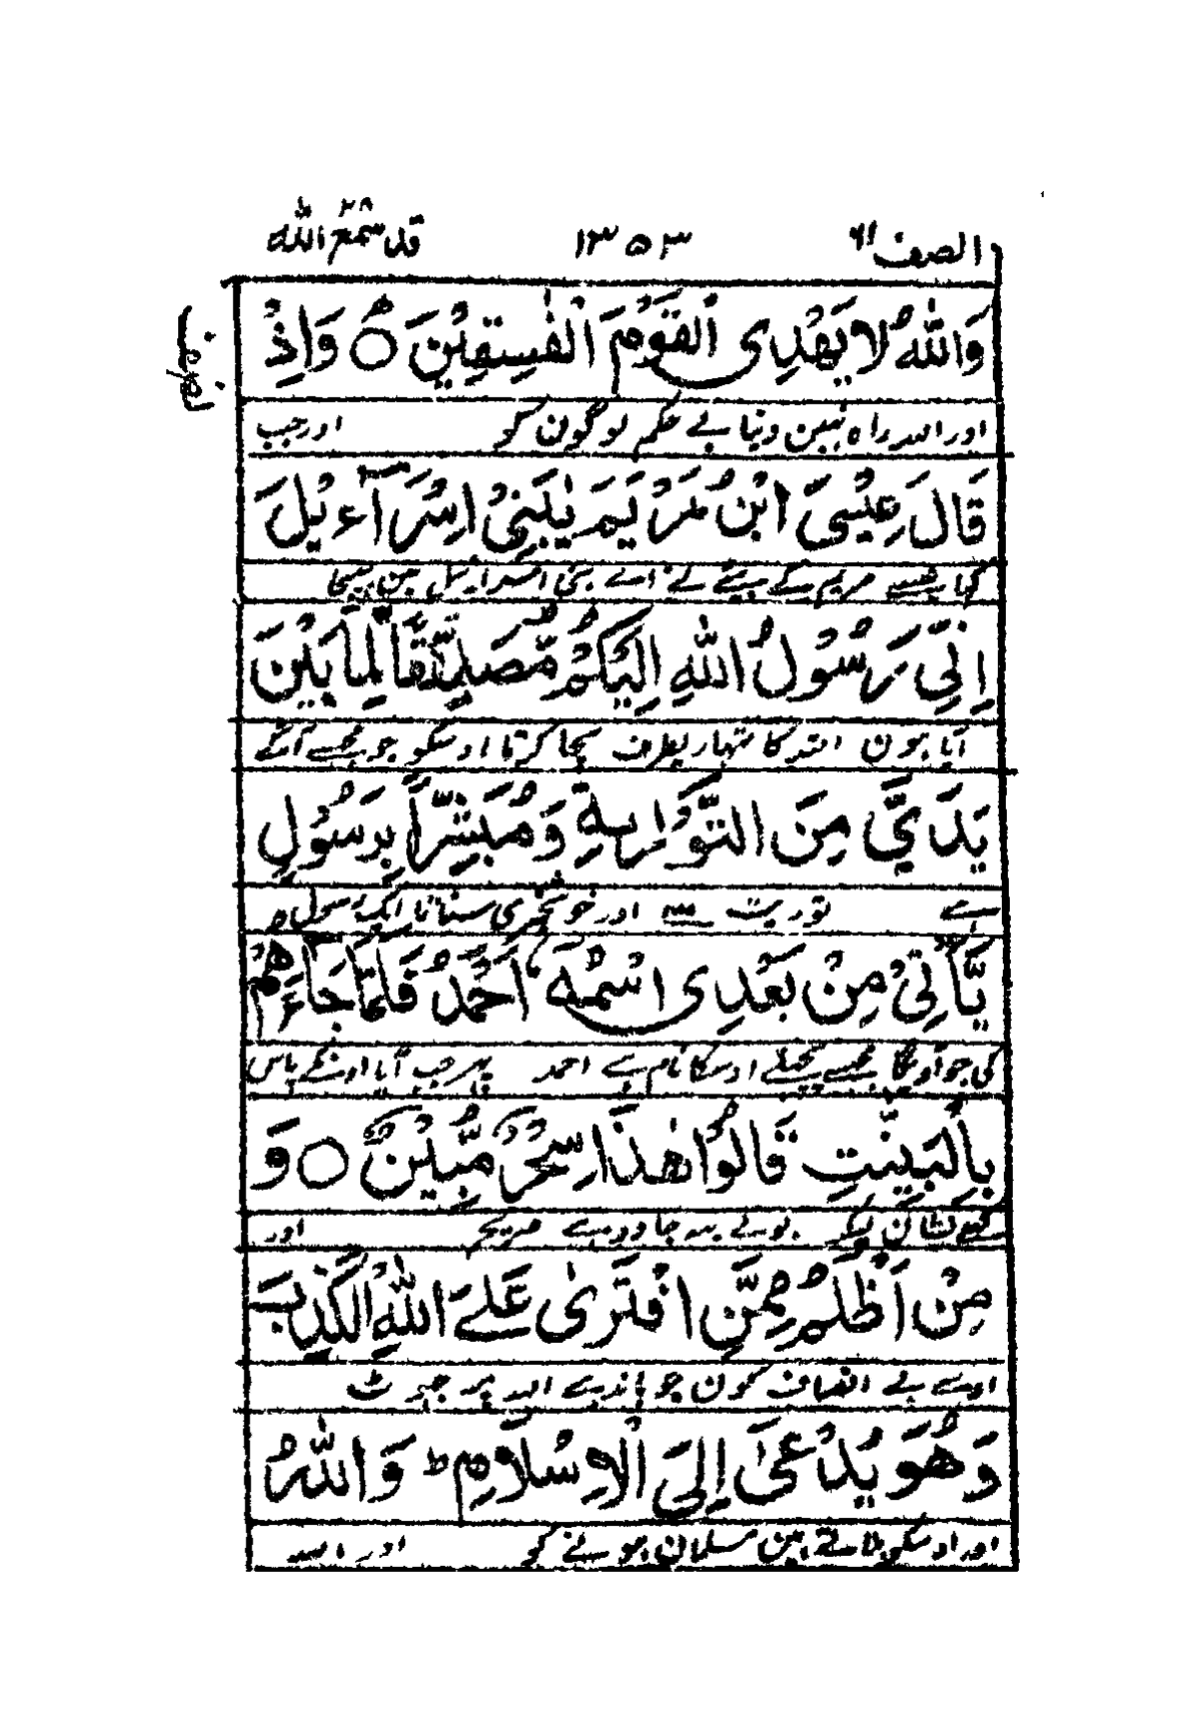 الصف ٦١ ١٣٥٣ قد سمع الله ٢٨
وَاللّٰهُ لَا يَهْدِى الْقَوْمَ الْفٰسِقِيْنَ ۝ وَاِذْ
اور اللہ راہ نہین دیتا بے حکم لوگون کو اور جب
قَالَ عِيْسَى ابْنُ مَرْيَمَ يٰبَنِىْٓ اِسْرَآءِيْلَ
کہا عیسے مریم کے بیٹے نے اے بنی اسرائیل مین بھیجا
اِنِّىْ رَسُوْلُ اللّٰهِ اِلَيْكُمْ مُّصَدِّقًا لِّمَا بَيْنَ
آیا ہون اللہ کا تمہاریطرف سچا کرتا اوسکو جو مجھسے آگے
يَدَىَّ مِنَ التَّوْرٰىةِ وَمُبَشِّرًا بِرَسُوْلٍ
ہے توریت سے اور خوشخبری سناتا ایک رسول
يَّاْتِىْ مِنْۢ بَعْدِى اسْمُهٗٓ اَحْمَدُ فَلَمَّا جَآءَهُمْ
کی جو آویگا مجھسے پیچھے اوسکا نام ہے احمد پھر جب آیا اونکے پاس
بِالْبَيِّنٰتِ قَالُوْا هٰذَا سِحْرٌ مُّبِيْنٌ ۝ وَ
کھلے نشان لیکر بولے یہ جادو ہے صریح اور
مَنْ اَظْلَمُ مِمَّنِ افْتَرٰى عَلَى اللّٰهِ الْكَذِبَ
اوسسے بے انصاف کون جو باندہے اللہ پر جھوٹ
وَهُوَ يُدْعٰٓى اِلَى الْاِسْلَامِ ؕ وَاللّٰهُ
اور اوسکو بلاتے ہین مسلمان ہونے کو اور اللہ